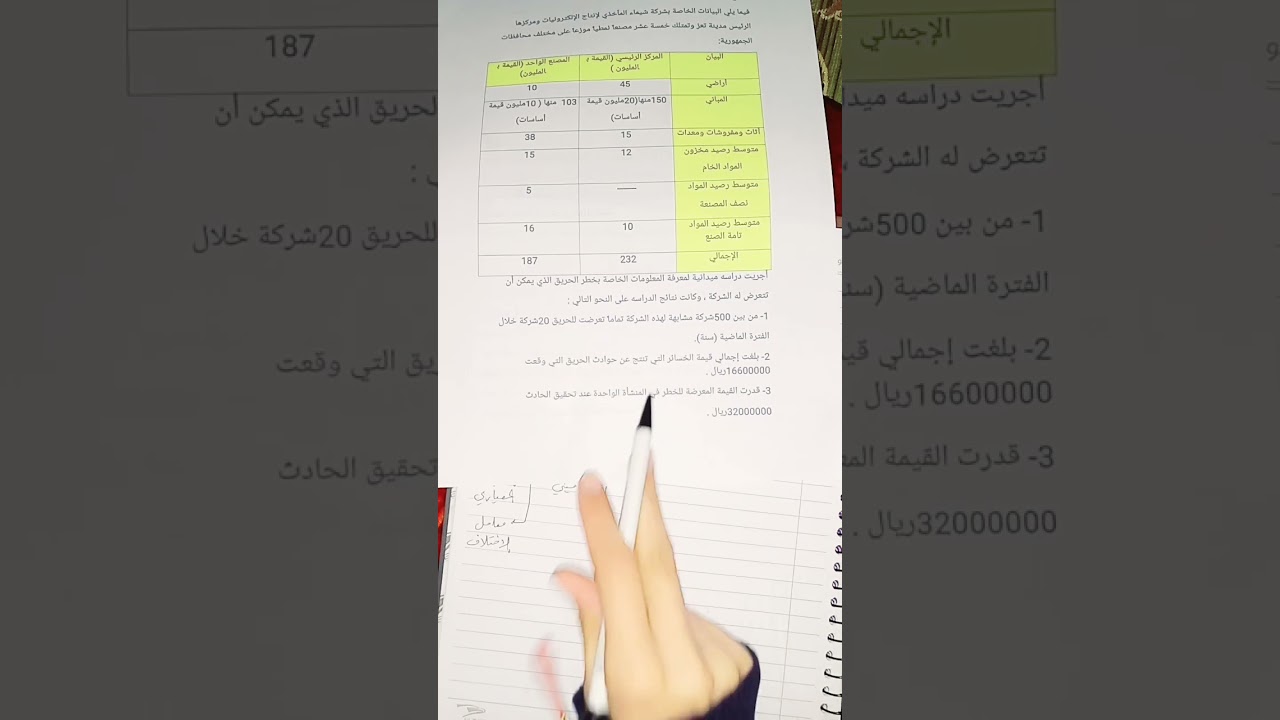 فيما يلي البيانات الخاصة بشركة شيماء المأخذي لإنتاج الإلكترونيات ومركزها
الرئيس مدينة تعز وتمتلك خمسة عشر مصنعاً نمطياً موزعاً على مختلف محافظات
الجمهورية:
البيان
المركز الرئيسي (القيمة ب المليون )
المصنع الواحد (القيمة ب المليون)
أراضي 45 10
المباني
150منها(20مليون قيمة أساسات)
103 منها ( 10مليون قيمة أساسات)
أثاث ومفروشات ومعدات 15 38
متوسط رصيد مخزون المواد الخام 12 15
متوسط رصيد المواد نصف المصنعة —— 5
متوسط رصيد المواد تامة الصنع 10 16
الإجمالي 232 187
أجريت دراسه ميدانية لمعرفة المعلومات الخاصة بخطر الحريق الذي يمكن أن
تتعرض له الشركة ، وكانت نتائج الدراسه على النحو التالي :
1- من بين 500شركة مشابهة لهذه الشركة تماماً تعرضت للحريق 20شركة خلال
الفترة الماضية (سنة).
2- بلغت إجمالي قيمة الخسائر التي تنتج عن حوادث الحريق التي وقعت
16600000ريال .
3- قدرت القيمة المعرضة للخطر في المنشأة الواحدة عند تحقيق الحادث
32000000ريال .
معامل
الاختلاف